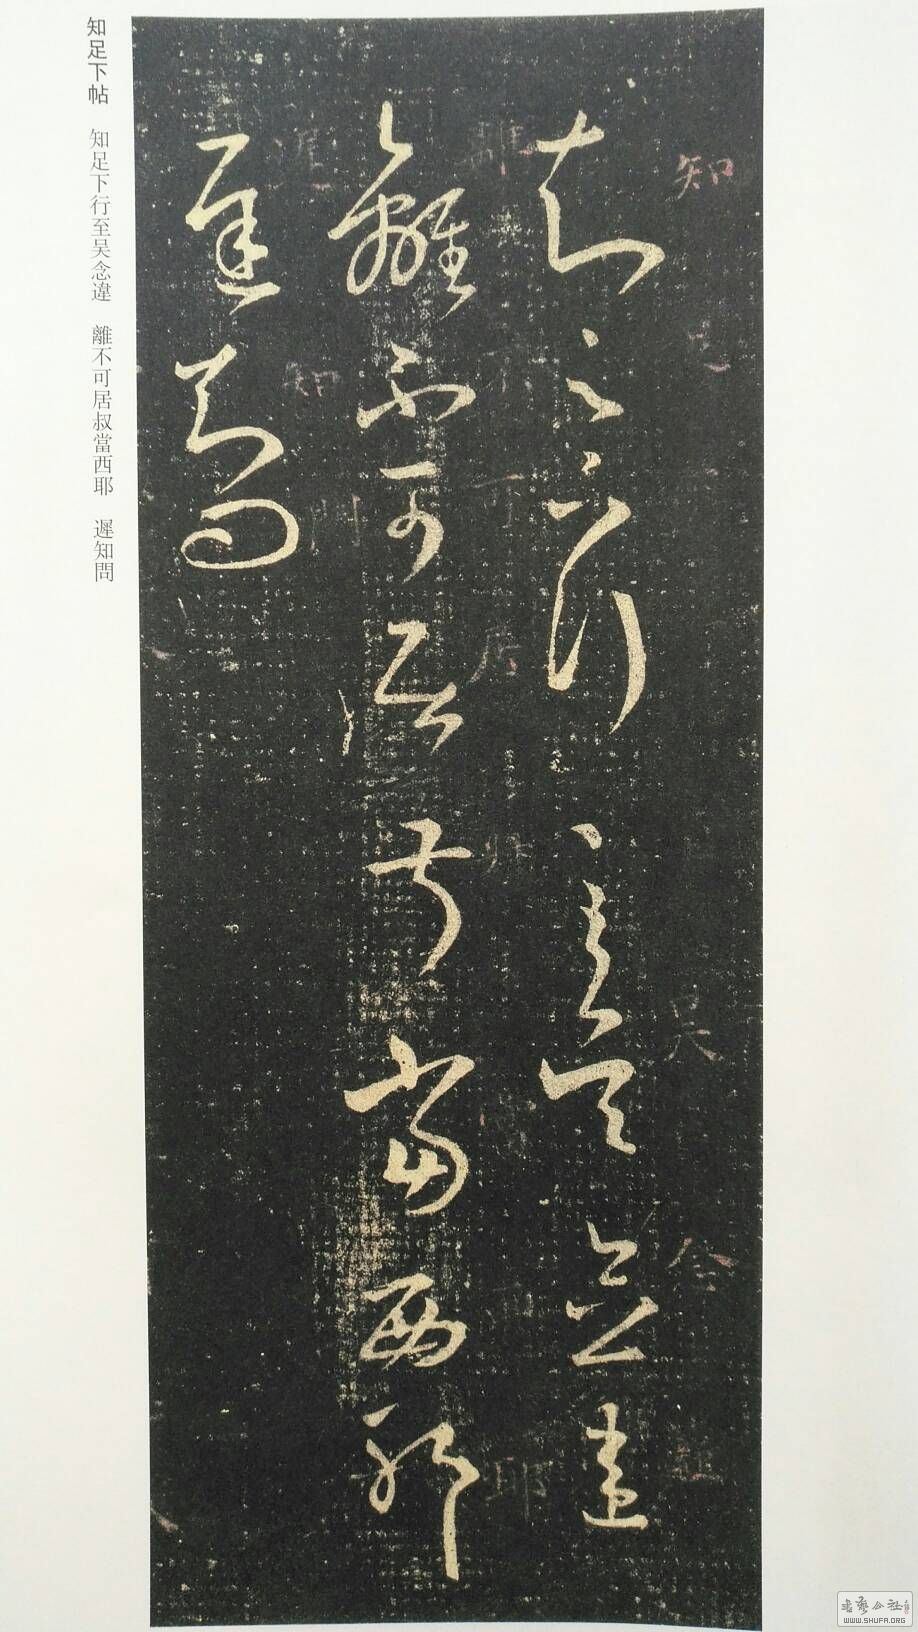 知足下行至吴念違
離不可居叔當西耶
遲知問
知足下帖 知足下行至吴念違 離不可居叔當西耶 遲知問
WWW.SHUFA.ORG